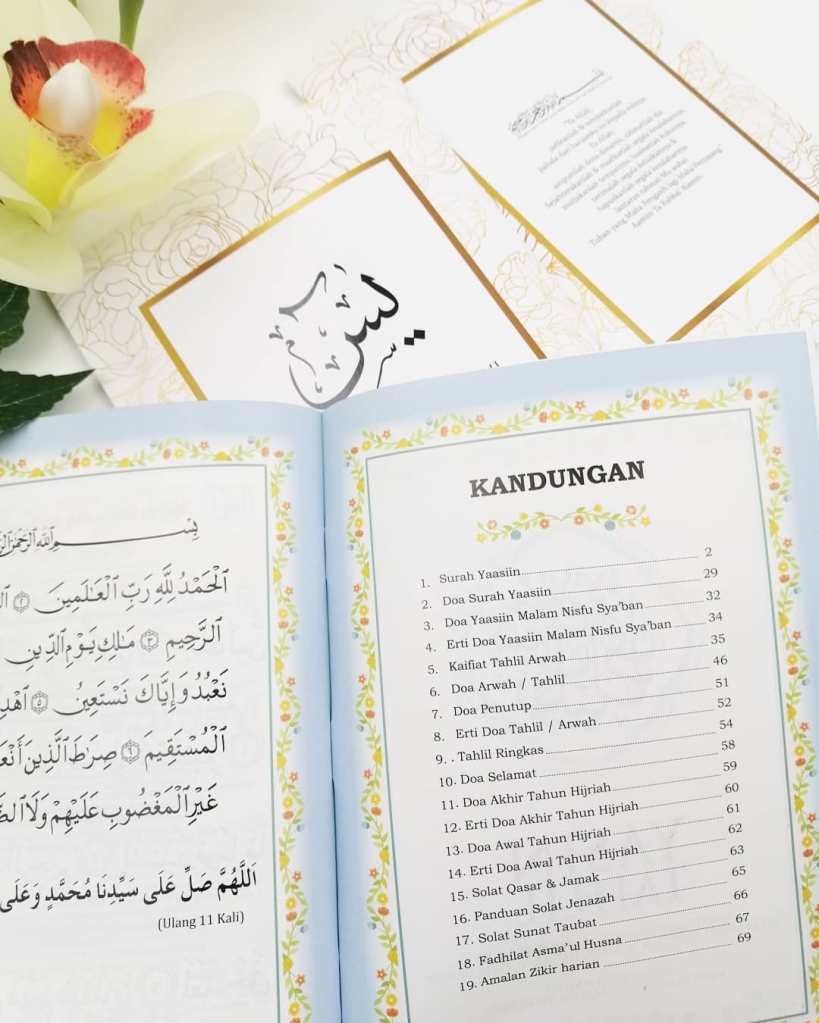 Ya Allah,
يس
بِسْمِ ٱللَّهِ ٱلرَّحْمَٰنِ
ٱلْحَمْدُ لِلَّهِ رَبِّ ٱلْعَٰلَمِينَ ٢
ٱلرَّحِيمِ ٣ مَٰلِكِ يَوْمِ ٱلدِّينِ
نَعْبُدُ وَإِيَّاكَ نَسْتَعِينُ ٥
ٱلْمُسْتَقِيمَ ٦ صِرَٰطَ ٱلَّذِينَ
غَيْرِ ٱلْمَغْضُوبِ عَلَيْهِمْ وَلَا
اَللَّهُمَّ صَلِّ عَلَى سَيِّدِنَا مُحَمَّدٍ وَعَلَى
(Ulang 11 Kali)
KANDUNGAN
1. Surah Yaasiin 2
2. Doa Surah Yaasiin 29
3. Doa Yaasiin Malam Nisfu Sya'ban 32
4. Erti Doa Yaasiin Malam Nisfu Sya'ban 34
5. Kaifiat Tahlil Arwah 35
6. Doa Arwah / Tahlil 46
7. Doa Penutup 51
8. Erti Doa Tahlil / Arwah 52
9. . Tahlil Ringkas 54
10. Doa Selamat 58
11. Doa Akhir Tahun Hijriah 59
12. Erti Doa Akhir Tahun Hijriah 60
13. Doa Awal Tahun Hijriah 61
14. Erti Doa Awal Tahun Hijriah 62
15. Solat Qasar & Jamak 63
16. Panduan Solat Jenazah 65
17. Solat Sunat Taubat 66
18. Fadhilat Asma'ul Husna 67
19. Amalan Zikir harian 69